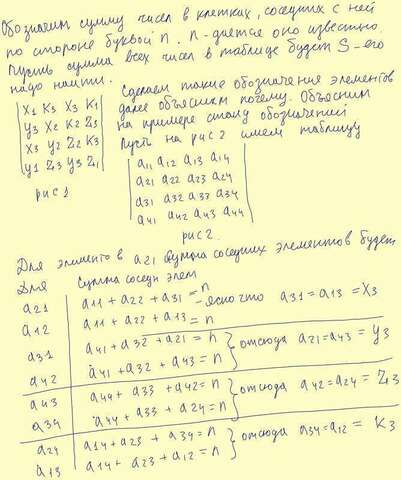 Обозначим сумму чисел в клетках, соседних с ней
по стороне буквой n. n-дается оно известно.
Пусть сумма всех чисел в таблице будет S-его
надо найти.
Сделаем такие обозначения элементов
далее объясним почему. Объясним
на примере такку обозначений
Пусть на рис 2 имеем таблицу
x1 K3 X3 K1
y3 X2 K2 Z3
X3 y2 Z2 K3
y1 Z3 y3 Z1
рис 1
a11 a12 a13 a14
a21 a22 a23 a24
a31 a32 a33 a34
a41 a42 a43 a44
рис 2.
Для элемента a21 сумма соседних элементов будет
Для сумма соседн элем
a21 a11 + a22 + a31 = n
- ясно что a31 = a13 = X3
a12 a11 + a22 + a13 = n
a31 a41 + a32 + a21 = n
отсюда a21 = a43 = y3
a42 a41 + a32 + a43 = n
a43 a44 + a33 + a42 = n
отсюда a42 = a24 = Z3
a34 a44 + a33 + a24 = n
a24 a14 + a23 + a34 = n
отсюда a34 = a12 = K3
a13 a14 + a23 + a12 = n